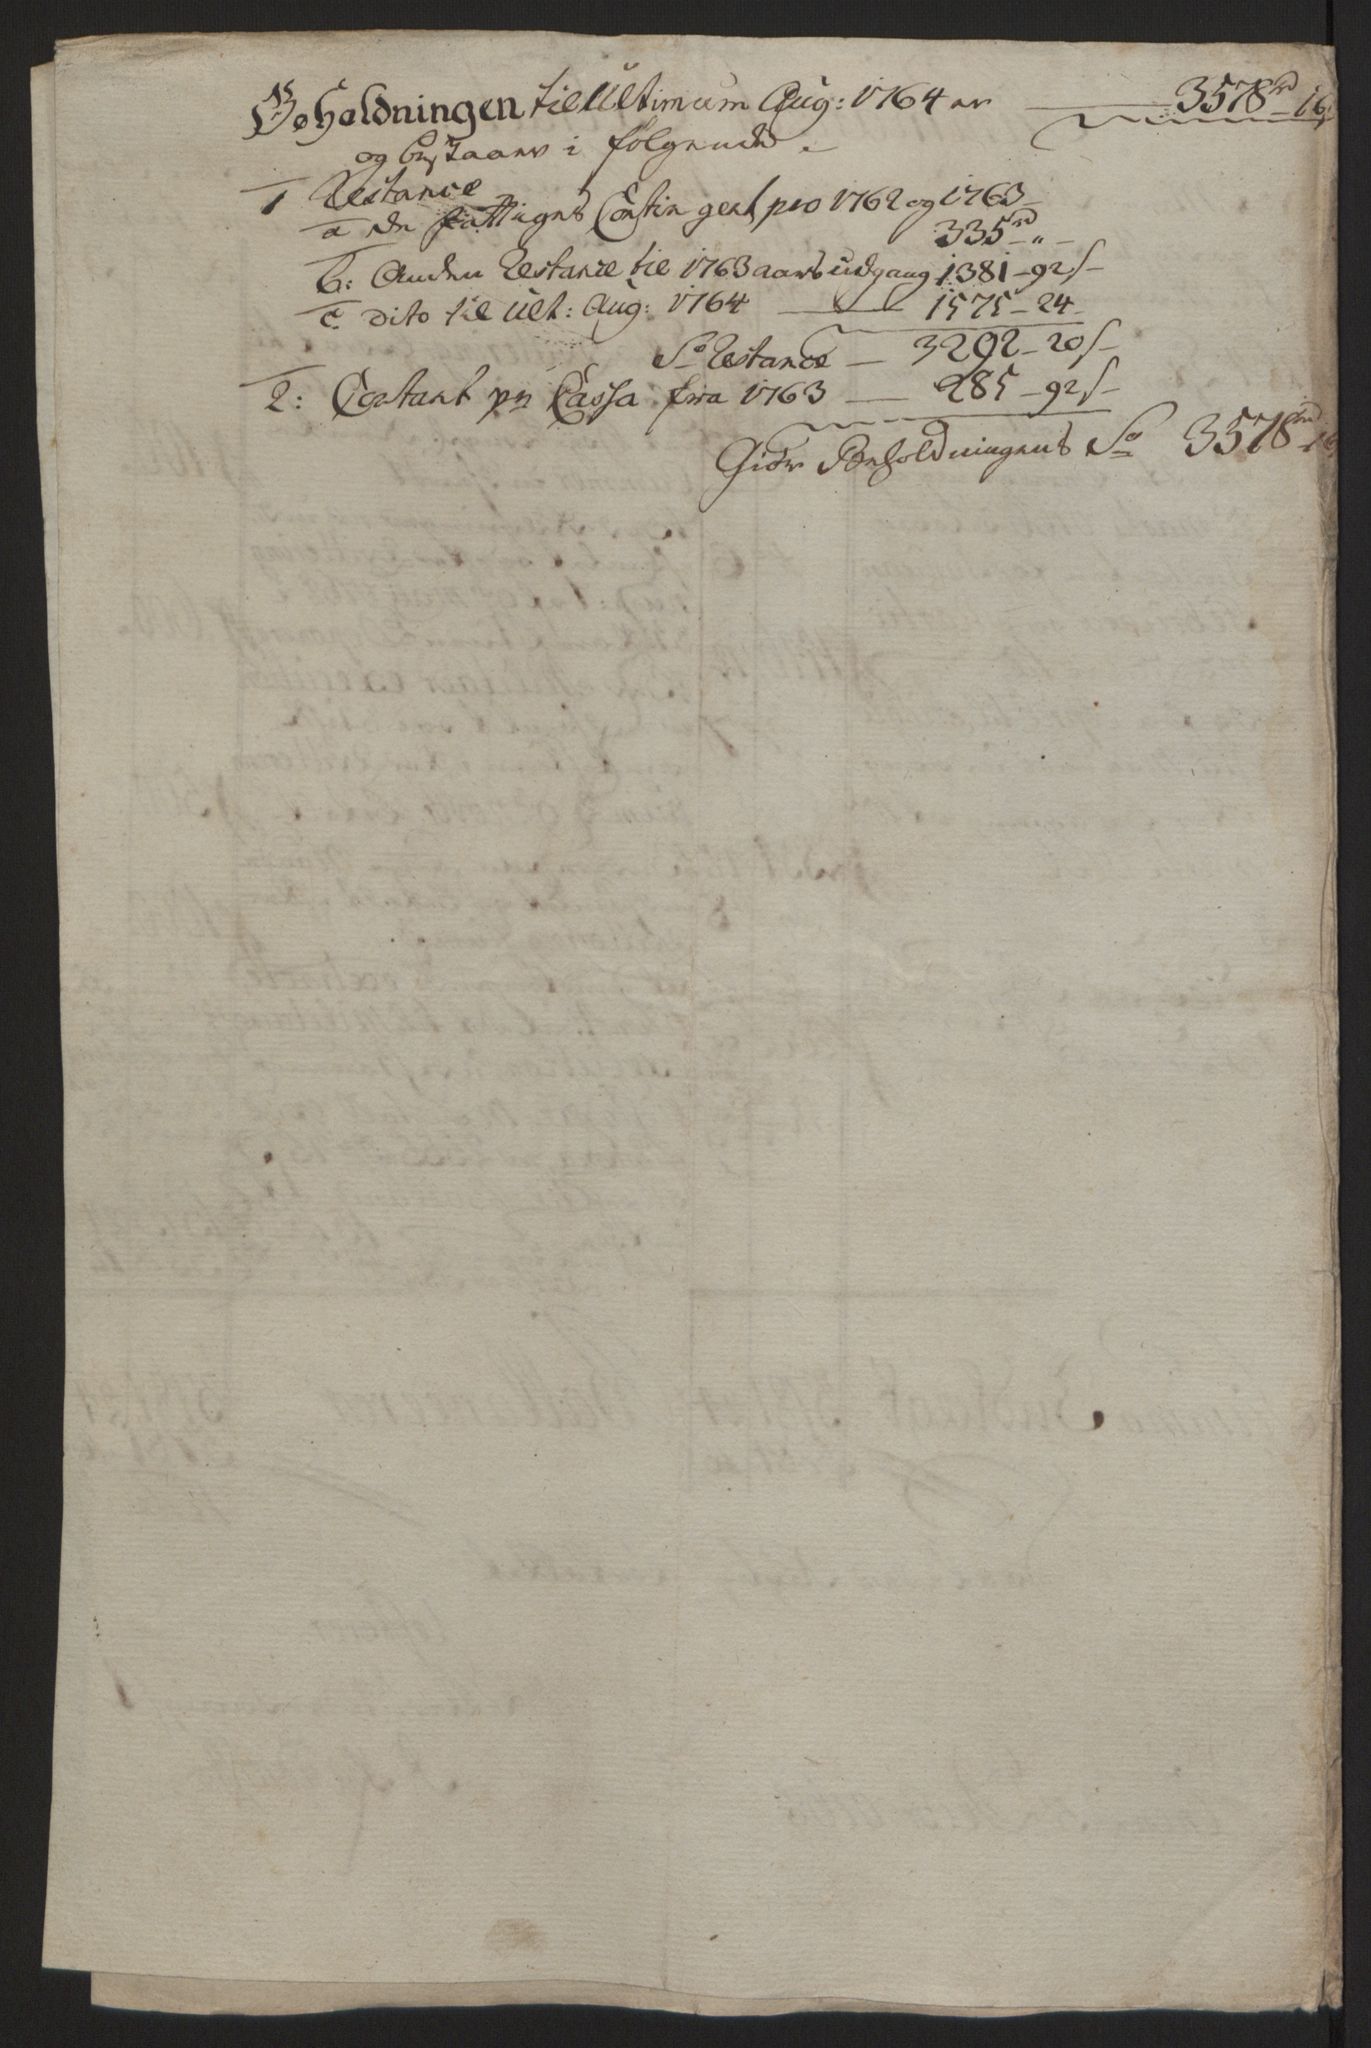 Beholdningen til Ultimum Aug: 1764 er 3578rd 16
og bestaaer i følgende.
1 Restance
a de fattiges Contingent pro 1762 og 1763
335rd „
b: Anden Restance til 1763 aars udgang 1381 - 92 s
c dito til ult: Aug: 1764 1575 - 24
Sa Restance 3292 - 20 s
2: Contant pr Cassa fra 1763 285 - 92 s
Giør Beholdningens Sa 3578rd 16